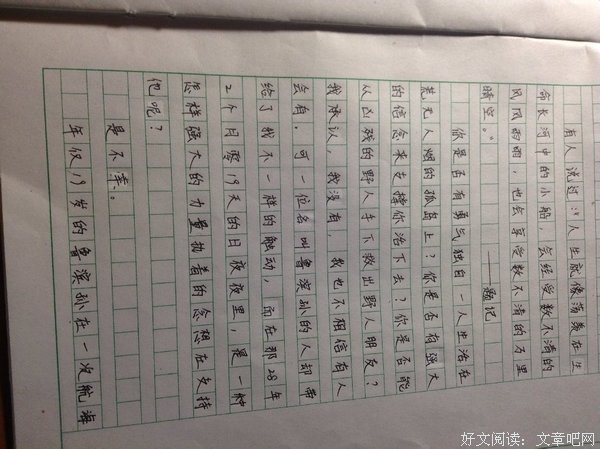 有人说过：“人生就像荡漾在生
命长河中的小船，会经受数不清的
风风雨雨，也会享受数不清的万里
晴空。”
——题记
你是否有勇气独自一人生活在
荒无人烟的孤岛上？你是否有强大
的信念来支撑你活下去？你是否能
从凶残的野人手下救出野人朋友？
我承认，我没有，我也不相信有人
会有。可一位名叫鲁滨孙的人却带
给了我不一样的触动，而在那28年
2个月零19天的日夜夜里，是一种
怎样强大的力量执着的念想在支持
他呢？
是不幸。
年仅19岁的鲁滨孙在一次航海
好文阅读：文章吧网